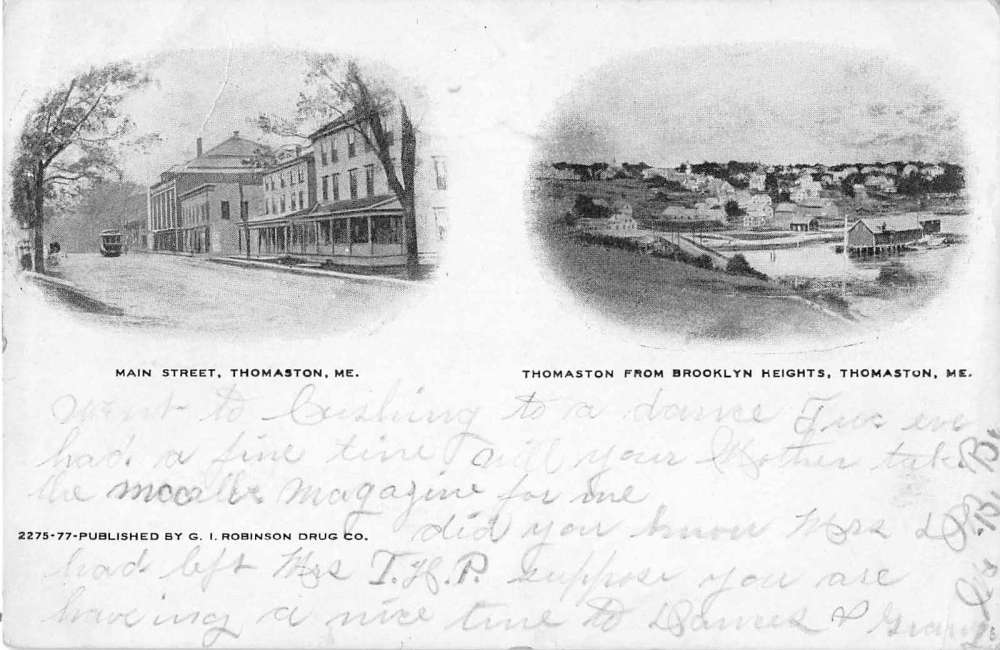 MAIN STREET, THOMASTON, ME.
THOMASTON FROM BROOKLYN HEIGHTS, THOMASTON, ME.
Went to Cushing to a dance Tues eve
had a fine time will your Mother take
the magazine for me
2275-77-PUBLISHED BY G. I. ROBINSON DRUG CO.
did you know Mrs
had left Mrs T.H.P. suppose you are
haveing a nice time to Dances &